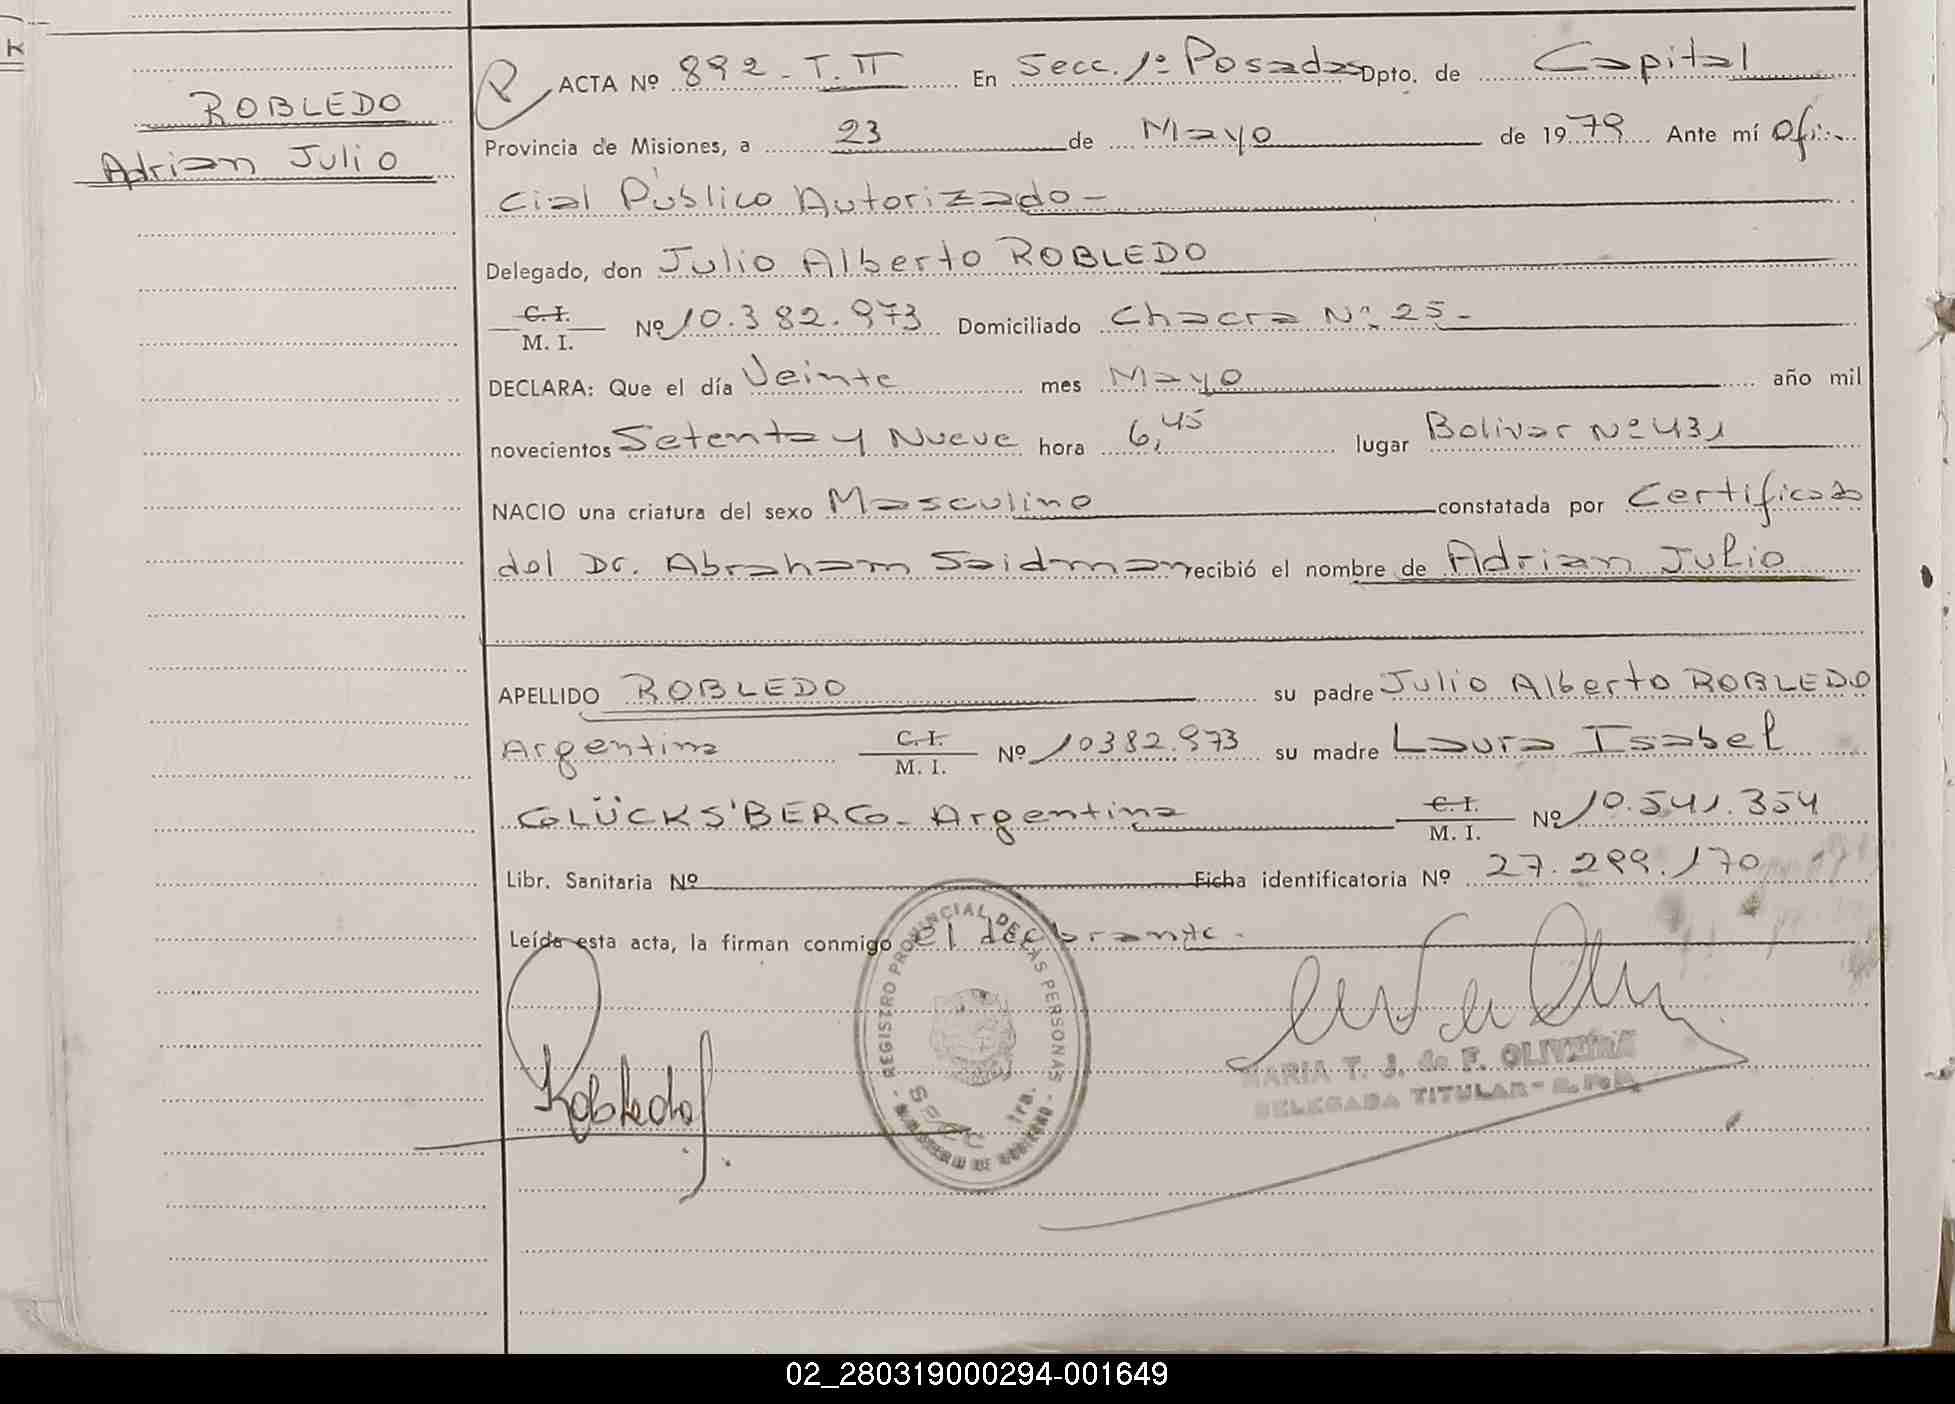 K
ROBLEDO
Adrian Julio
ACTA Nº 892 - T. II En Secc. 1º Posadas Dpto. de Capital
Provincia de Misiones, a 23 de Mayo de 1979 Ante mí Ofi-
cial Público Autorizado -
Delegado, don Julio Alberto ROBLEDO
C. I.
M. I. Nº 10.382.973 Domiciliado Chacra Nº 25 -
DECLARA: Que el día Veinte mes Mayo año mil
novecientos Setenta y Nueve hora 6,45 lugar Bolivar Nº 431
NACIO una criatura del sexo Masculino constatada por Certificado
del Dr. Abraham Saidman recibió el nombre de Adrian Julio
APELLIDO ROBLEDO su padre Julio Alberto ROBLEDO
Argentina C. I. M. I. Nº 10382.973 su madre Laura Isabel
GLÜCKS'BERG - Argentina C. I. M. I. Nº 10.541.354
Libr. Sanitaria Nº Ficha identificatoria Nº 27.299.170
Leída esta acta, la firman conmigo el declarante -
REGISTRO PROVINCIAL DE LAS PERSONAS
MINISTERIO DE GOBIERNO
1ra.
Robledo
MARIA T. J. de F. OLIVEIRA
DELEGADA TITULAR - R. P. P.
02_280319000294-001649